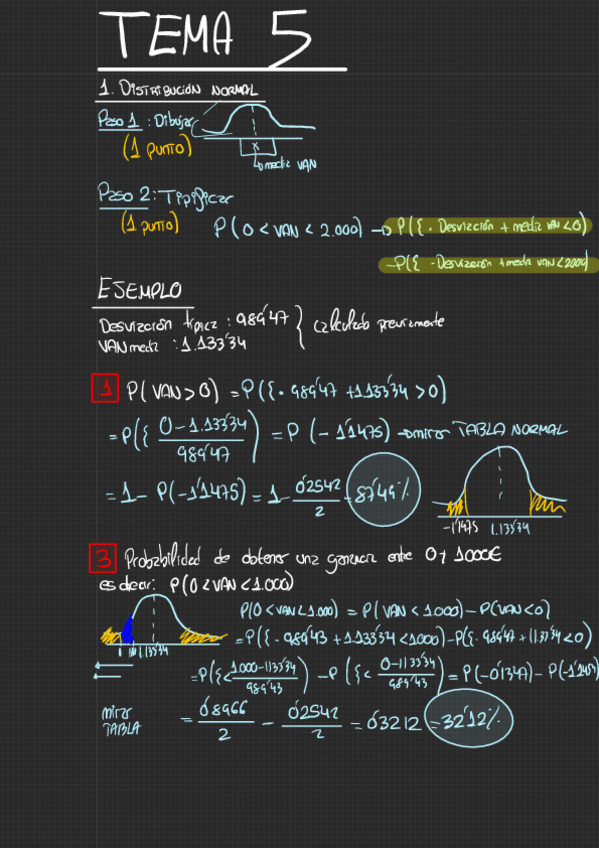 TEMA 5
1. DISTRIBUCIÓN NORMAL
Paso 1: Dibujar
(1 PUNTO)
x
media VAN
Paso 2: Tipificar
(1 punto)
P(0 < VAN < 2.000) → P(ξ · Desviación + media VAN < 0)
-P(ξ · Desviación + media VAN < 2000)
EJEMPLO
Desviación típica : 989'47 } calculado previamente
VAN media : 1.133'34
1 P(VAN > 0) = P(ξ · 989'47 + 1133'34 > 0)
= P(ξ (0 - 1.133'34)/989'47) = P(-1'1475) → mirar TABLA NORMAL
= 1 - P(-1'1475) = 1 - 0'2542/2 = 87'49%
-1'1475 1.133'34
3 Probabilidad de obtener una ganancia entre 0 y 1000€
es decir: P(0 < VAN < 1.000)
P(0 < VAN < 1.000) = P(VAN < 1.000) - P(VAN < 0)
1.133'34
= P(ξ · 989'43 + 1133'34 < 1000) - P(ξ · 989'47 + 1133'34 < 0)
= P(ξ < (1.000 - 1133'34)/989'43) - P(ξ < (0 - 1133'34)/989'43) = P(-0'1347) - P(-1'145
mirar TABLA
= 0'8966/2 - 0'2542/2 = 0'3212 = 32'12%